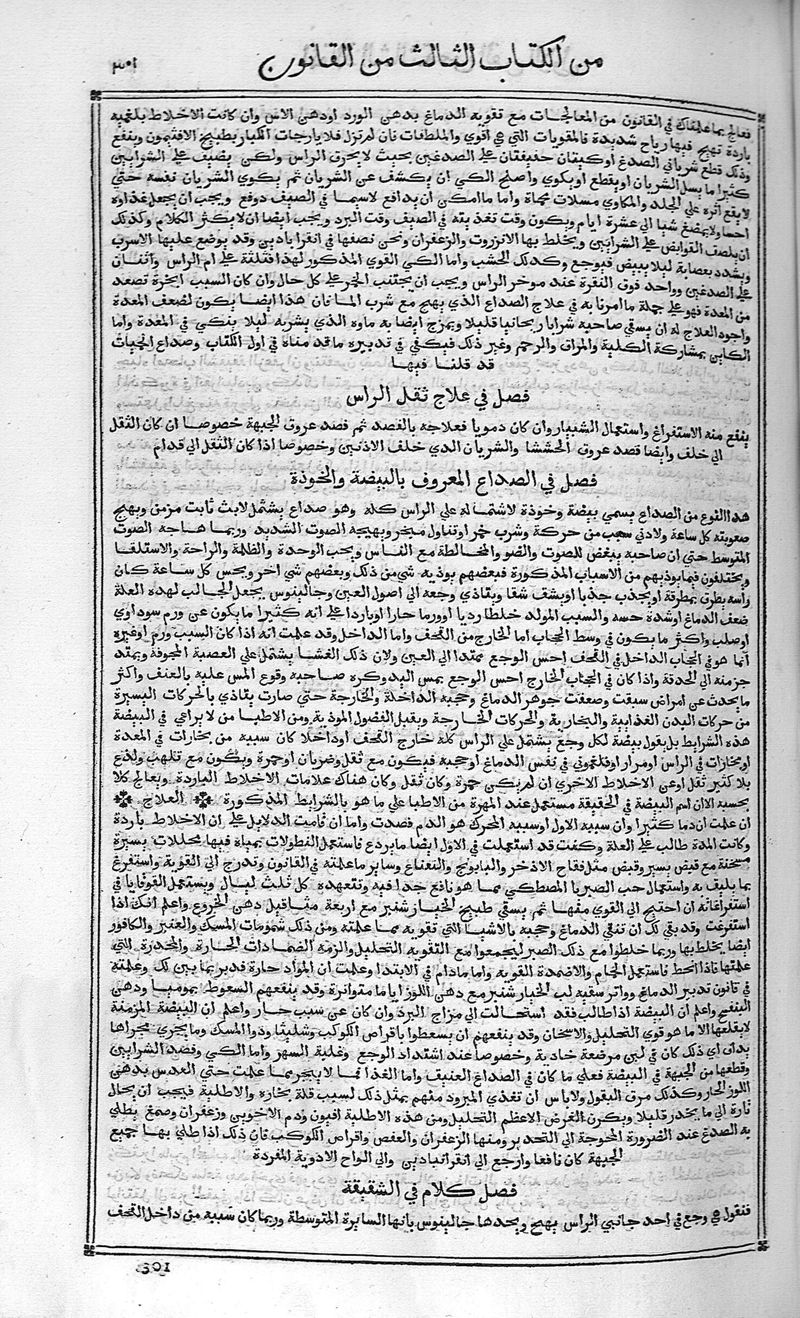 من الكتاب الثالث من القانون
٣٠١
فعالج بما علمناك في القانون من المعالجات مع تقويه الدماغ بدهن الورد اودهن الاس وان كانت الاخلاط بلغميه
باردة تهيج فيها رياح شديدة فالمقويات التي هي اقوي والملطفات فان لم تزل فلايارجات الكبار بطبيخ الافتيمون وينفع
وذلك قطع شرياني الصدغ اوكيتان خفيفتان علي الصدغين بحيث لا يحرق الراس ولكي يضيف علي الشرايين
كثيرا ما يسل الشريان اويقطع اويكوي واصلح الكي ان يكشف عن الشريان ثم يكوي الشريان نفسه حتي
لا يقع اثره علي الجلد والمكاوي مسلات محماة واما ما امكن ان يدافع لاسيما في الصيف دوفع ويجب ان يجعل غذاوه
احسا ولا يمضغ شيا الي عشرة ايام ويكون وقت تغذيته في الصيف وقت البرد ويجب ايضا ان لا يكثر الكلام وكذلك
ان يلصف القوابض علي الشرايين ويخلط بها الانزروت والزعفران ونحن نصفها في انقرابادين وقد يوضع عليها الاسرب
ويشدد بعصابة ليلا ينبض فيوجع وكذلك الخشب واما الكي القوي المذكور لهذا فثلثة علي ام الراس واثنان
علي الصدغين وواحد فوق النقرة عند موخر الراس ويجب ان يجتنب الخمر علي كل حال وان كان السبب ابخرة تصعد
من المعدة فهو علي جملة ما امرنا به في علاج الصداع الذي يهيج مع شرب الما فان هذا ايضا يكون لضعف المعدة
واجود العلاج له ان يسقي صاحبه شرابا ريحانيا قليلا ويمزج ايضا به ماوه الذي يشربه ليلا ينكي في المعدة واما
الكاين بمشاركة الكلية والمراق والرحم وغير ذلك فيكفي في تدبيره ما قدمناه في اول الكتاب وصداع الحميات
قد قلنا فيها
فصل في علاج ثقل الراس
ينفع منه الاستفراغ واستعمال الشبيار وان كان دمويا فعلاجه بالفصد ثم فصد عروق الجبهة خصوصا ان كان الثقل
الي خلف وايضا فصد عروق الخششا والشريان الذي خلف الاذنين وخصوصا اذا كان الثقل الي قدام
فصل في الصداع المعروف بالبيضة والخوذة
هذا النوع من الصداع يسمي بيضة وخوذة لاشتماله علي الراس كله وهو صداع يشتمل لابث ثابت مزمن ويهيج
صعوبته كل ساعة ولادني سبب من حركة وشرب خمر اوتناول مبخر ويهيجه الصوت الشديد وربما هاجه الصوت
المتوسط حتي ان صاحبه يبغض الصوت والضو والمخالطة مع الناس ويحب الوحدة والظلمة والراحة والاستلقا
ويختلفون فيما يوذيهم من الاسباب المذكورة فبعضهم يوذيه شي من ذلك وبعضهم شي اخر ويحس كل ساعة كان
راسه يطرق بمطرقة اويجذب جذبا اويشف شقا ويتاذي وجعه الي اصول العين وجالينوس يجعل الجالب لهذه العلة
ضعف الدماغ اوشدة حسه والسبب المولد خلطا رديا اوورما حارا اوباردا علي انه كثيرا ما يكون عن ورم سوداوي
اوصلب واكثر ما يكون في وسط الحجاب اما الخارج من القحف واما الداخل وقد علمت انه اذا كان السبب ورم اوغيره
انما هو في الحجاب الداخل في القحف احس الوجع ممتدا الي العين ولان ذلك الغشا يشتمل علي العصبة المجوفة ويمتد
جز منه الي الحدقة واذا كان في الحجاب الخارج احس الوجع بمس اليد وكره صاحبه وقوع المس عليه بالعنف واكثر
ما يحدث عن امراض سبقت وضعفت جوهر الدماغ وحجبه الداخلة والخارجة حتي صارت يتاذي بالحركات اليسيرة
من حركات البدن الغذايية والبخارية والحركات الخارجة ويقبل الفضول الموذية ومن الاطبا من لا يراعي في البيضة
هذه الشرايط بل يقول بيضة لكل وجع يشتمل علي الراس كله خارج القحف اوداخلا كان سببه من بخارات في المعدة
اوبخارات في الراس اومرار اوفلغموني في نفس الدماغ اوحجبه فيكون مع ثقل وضربان اوحمرة ويكون مع تلهب ولذع
بلا كثير ثقل اوعن الاخلاط الاخري ان لم يكن حمرة وكان ثقل وكان هناك علامات الاخلاط الباردة ويعالج كلا
بحسبه الا ان اسم البيضة في الحقيقة مستعمل عند المهرة من الاطبا علي ما هو بالشرايط المذكورة العلاج
ان علمت ان دما كثيرا وان سببه الاول اوسببه المحرك هو الدم فصدت واما ان قامت الدلايل علي ان الاخلاط باردة
وكانت المدة طالب علي العلة وكنت قد استعملت في الاول ايضا ما يردع فاستعمل النطولات بمياه فيها محللات يسيرة
مسخنة مع قبض يسير وقبض مثل فقاح الاذخر والبابونج والنعناع وساير ما علمته في القانون وتدرج الي القوية واستفرغ
بما يليق به واستعمال حب الصبر با المصطكي مما هو نافع جدا فيه وتتعهده كل ثلث ليال ويستعمل القوقايا في
استفراغاته ان احتيج الي القوي منها ثم يسقي طبيخ الخيار شنبر مع اربعة مثاقيل دهن الخروع واعلم انك اذا
استفرغت وقد بقي لك ان تنقي الدماغ وحجبه بالاشيا التي تقويه مما علمته ومن ذلك شمومات المسك والعنبر والكافور
ايضا يخلط بها وربما خلطوا مع ذلك الصبر ليجمعوا مع التقويه التحليل والزمه الضمادات الحارة والمخدرة التي
علمتها فاذا انحط فاستعمل الحمام والاضمدة القوية واما مادام في الابتدا وعلمت ان المواد حارة فدبر بما يبن لك وعلمته
في قانون تدبير الدماغ وواتر سقيه لب الخيار شنبر مع دهن اللوز اياما متواترة وقد ينفعهم السعوط بموميا ودهن
البنفسج واعلم ان البيضة اذا طالب فقد استحالت الي مزاج البرد وان كان عن سبب حار واعلم ان البيضة المزمنة
لا يقلعها الا ما هو قوي التحليل والاسخان وقد ينفعهم ان يسعطوا باقراص الكوكب وشليثا ودوا المسك وما يجري مجراها
يداف اي ذلك كان في لبن مرضعة جارية وخصوصا عند اشتداد الوجع وغلبة السهر واما الكي وفصد الشرايين
وقطعها من الجبهة في البيضة فعلي ما كان في الصداع العنيف واما الغذا فما لا يبخر مما علمت حتي العدس بدهن
اللوز الحار وكذلك مرق البقول ولا باس ان تغذي المبرود منهم بمثل ذلك لسبب قلة بخاره والاطلية فيجب ان يحال
تارة الي ما يخدر قليلا ويكون الغرض الاعظم التحليل ومن هذه الاطلية افيون ودم الاخوين وزعفران وصمغ يطلي
به الصدغ عند الضرورة المحوجة الي التخدير ومنها الزعفران والعفص واقراص الكوكب فان ذلك اذا طلي بها جميع
الجبهة كان نافعا وارجع الي انقراباذين والي الواح الادوية المفردة
فصل كلام في الشقيقة
فنقول هي وجع في احد جانبي الراس يهيج ويحدها جالينوس بانها السايرة المتوسطة وربما كان سببه من داخل القحف
301